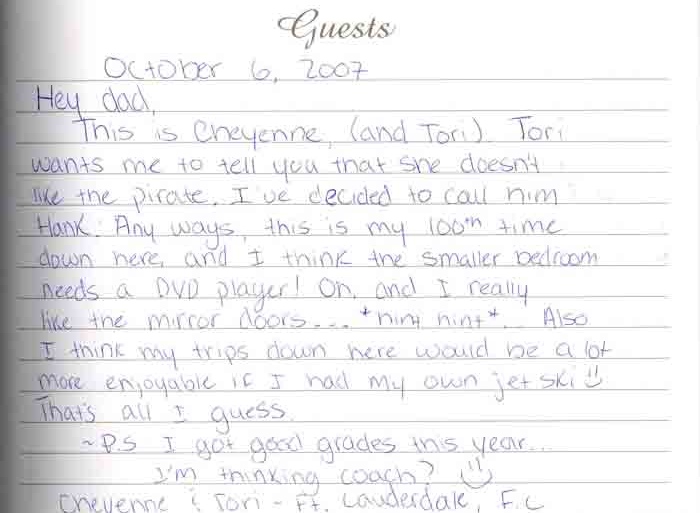 Guests
October 6, 2007
Hey dad,
This is Cheyenne, (and Tori). Tori
wants me to tell you that she doesn't
like the pirate. I've decided to call him
Hank. Any ways, this is my 100th time
down here, and I think the smaller bedroom
needs a DVD player! Oh, and I really
like the mirror doors... *hint hint*. Also
I think my trips down here would be a lot
more enjoyable if I had my own jet ski
That's all I guess.
~P.S I got good grades this year...
I'm thinking coach?
Cheyenne & Tori - Ft. Lauderdale, FL